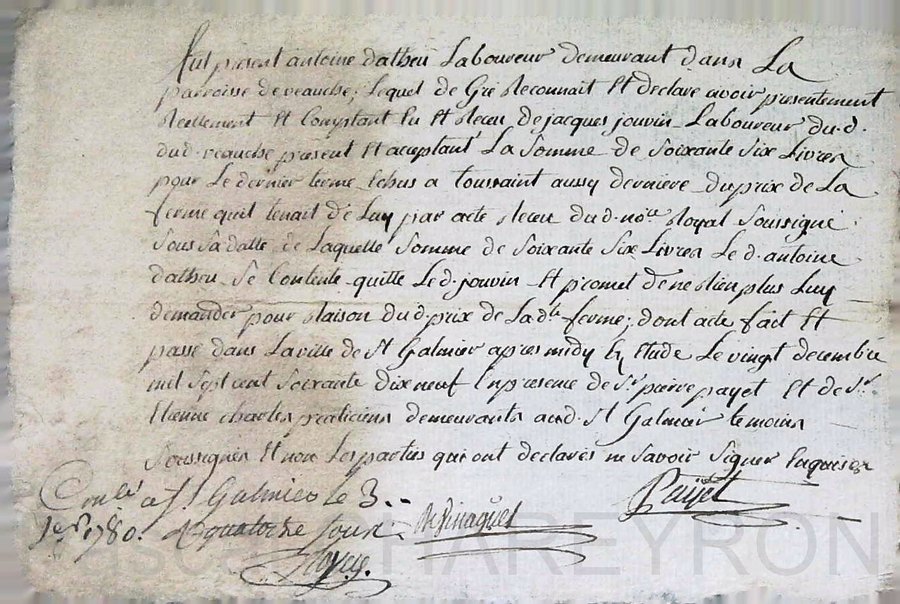 fut présent antoine datheu Laboureur demeurant dans La
parroisse de veauche, Lequel de Gré Reconnait Et declare avoir presentement
Reellement Et Comptant Eu Et Receu de jacques jouvin Laboureur du.d.
dud. veauche present Et acceptant La Somme de Soixante Six Livres
pour Le dernier terme Echus a toussaint aussy derniere du prix de La
ferme quil tenait de Luy par acte Receu du d. nore Royal Soussigné
Sous Sa datte de Laquelle Somme de Soixante Six Livres Le d. antoine
datheu Se Contente quitte Le d. jouvin Et promet de ne Rien plus Luy
demander pour Raison du d. prix de La dte ferme; dont acte fait Et
passé dans La ville de St Galmier apres midy En Etude Le vingt decembre
mil Sept cent Soixante dix neuf En presence de Sr pierre payet Et de Sr
Etienne charles praticiens demeurants aud. St Galmier temoins
Soussignés Et non Les parties qui ont declarés ne Savoir Signer Enquises
Payet
Conlé a St Galmier le 3
1er 1780. R quatorze Soux
HAREYRON